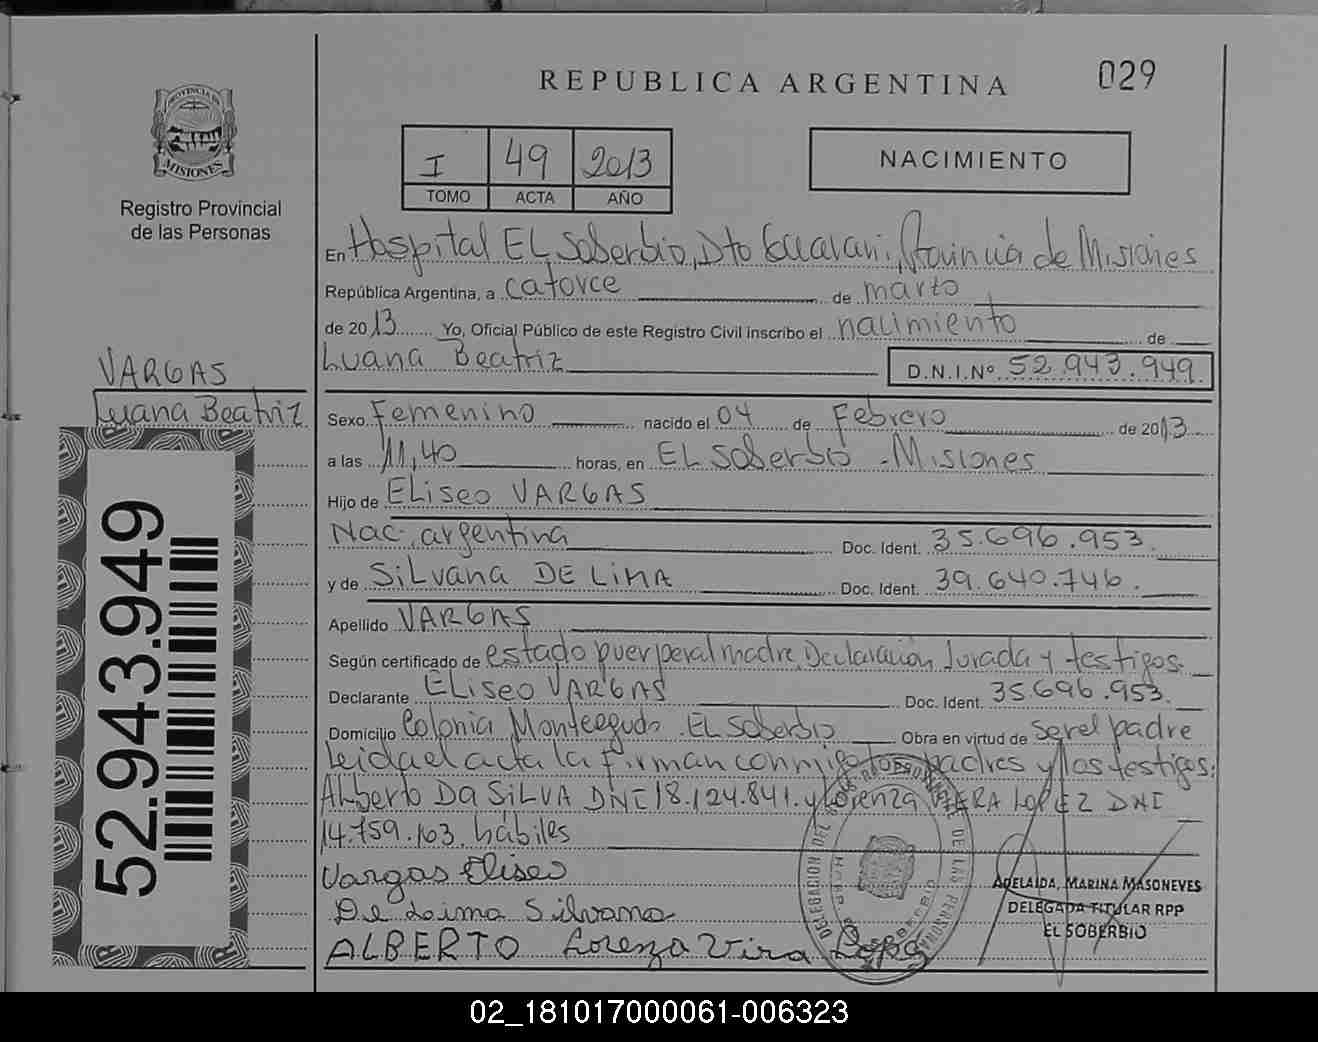 REPUBLICA ARGENTINA
029
PROVINCIA DE MISIONES
Registro Provincial
de las Personas
I 49 2013
TOMO ACTA AÑO
NACIMIENTO
En Hospital EL Soberbio, Dto Guarani, Provincia de Misiones
República Argentina, a catorce de marzo
de 2013 Yo, Oficial Público de este Registro Civil inscribo el nacimiento de
Luana Beatriz D.N.I.Nº 52.943.949
VARGAS
Luana Beatriz
Sexo Femenino nacido el 04 de Febrero de 2013
a las 11,40 horas, en EL Soberbio - Misiones
Hijo de ELiseo VARGAS
Nac. argentina Doc. Ident. 35.696.953
y de SiLvana DE LIMA Doc. Ident. 39.640.746.
Apellido VARGAS
Según certificado de estado puerperal madre, Declaración Jurada y testigos.
Declarante ELiseo VARGAS Doc. Ident. 35.696.953
Domicilio Colonia Monteagudo. EL Soberbio Obra en virtud de ser el padre
Leida el acta la firman conmigo los padres y los testigos:
Alberto Da SiLVA DNI 18.124.841. y Lorenza VIERA LOPEZ DNI
14.759.163. hábiles
Vargas Eliseo
De Loima Silvana
ALBERTO Lorenza Vira Lopez
ADELAIDA, MARINA MASONEVES
DELEGADA TITULAR RPP
EL SOBERBIO
52.943.949
02_181017000061-006323